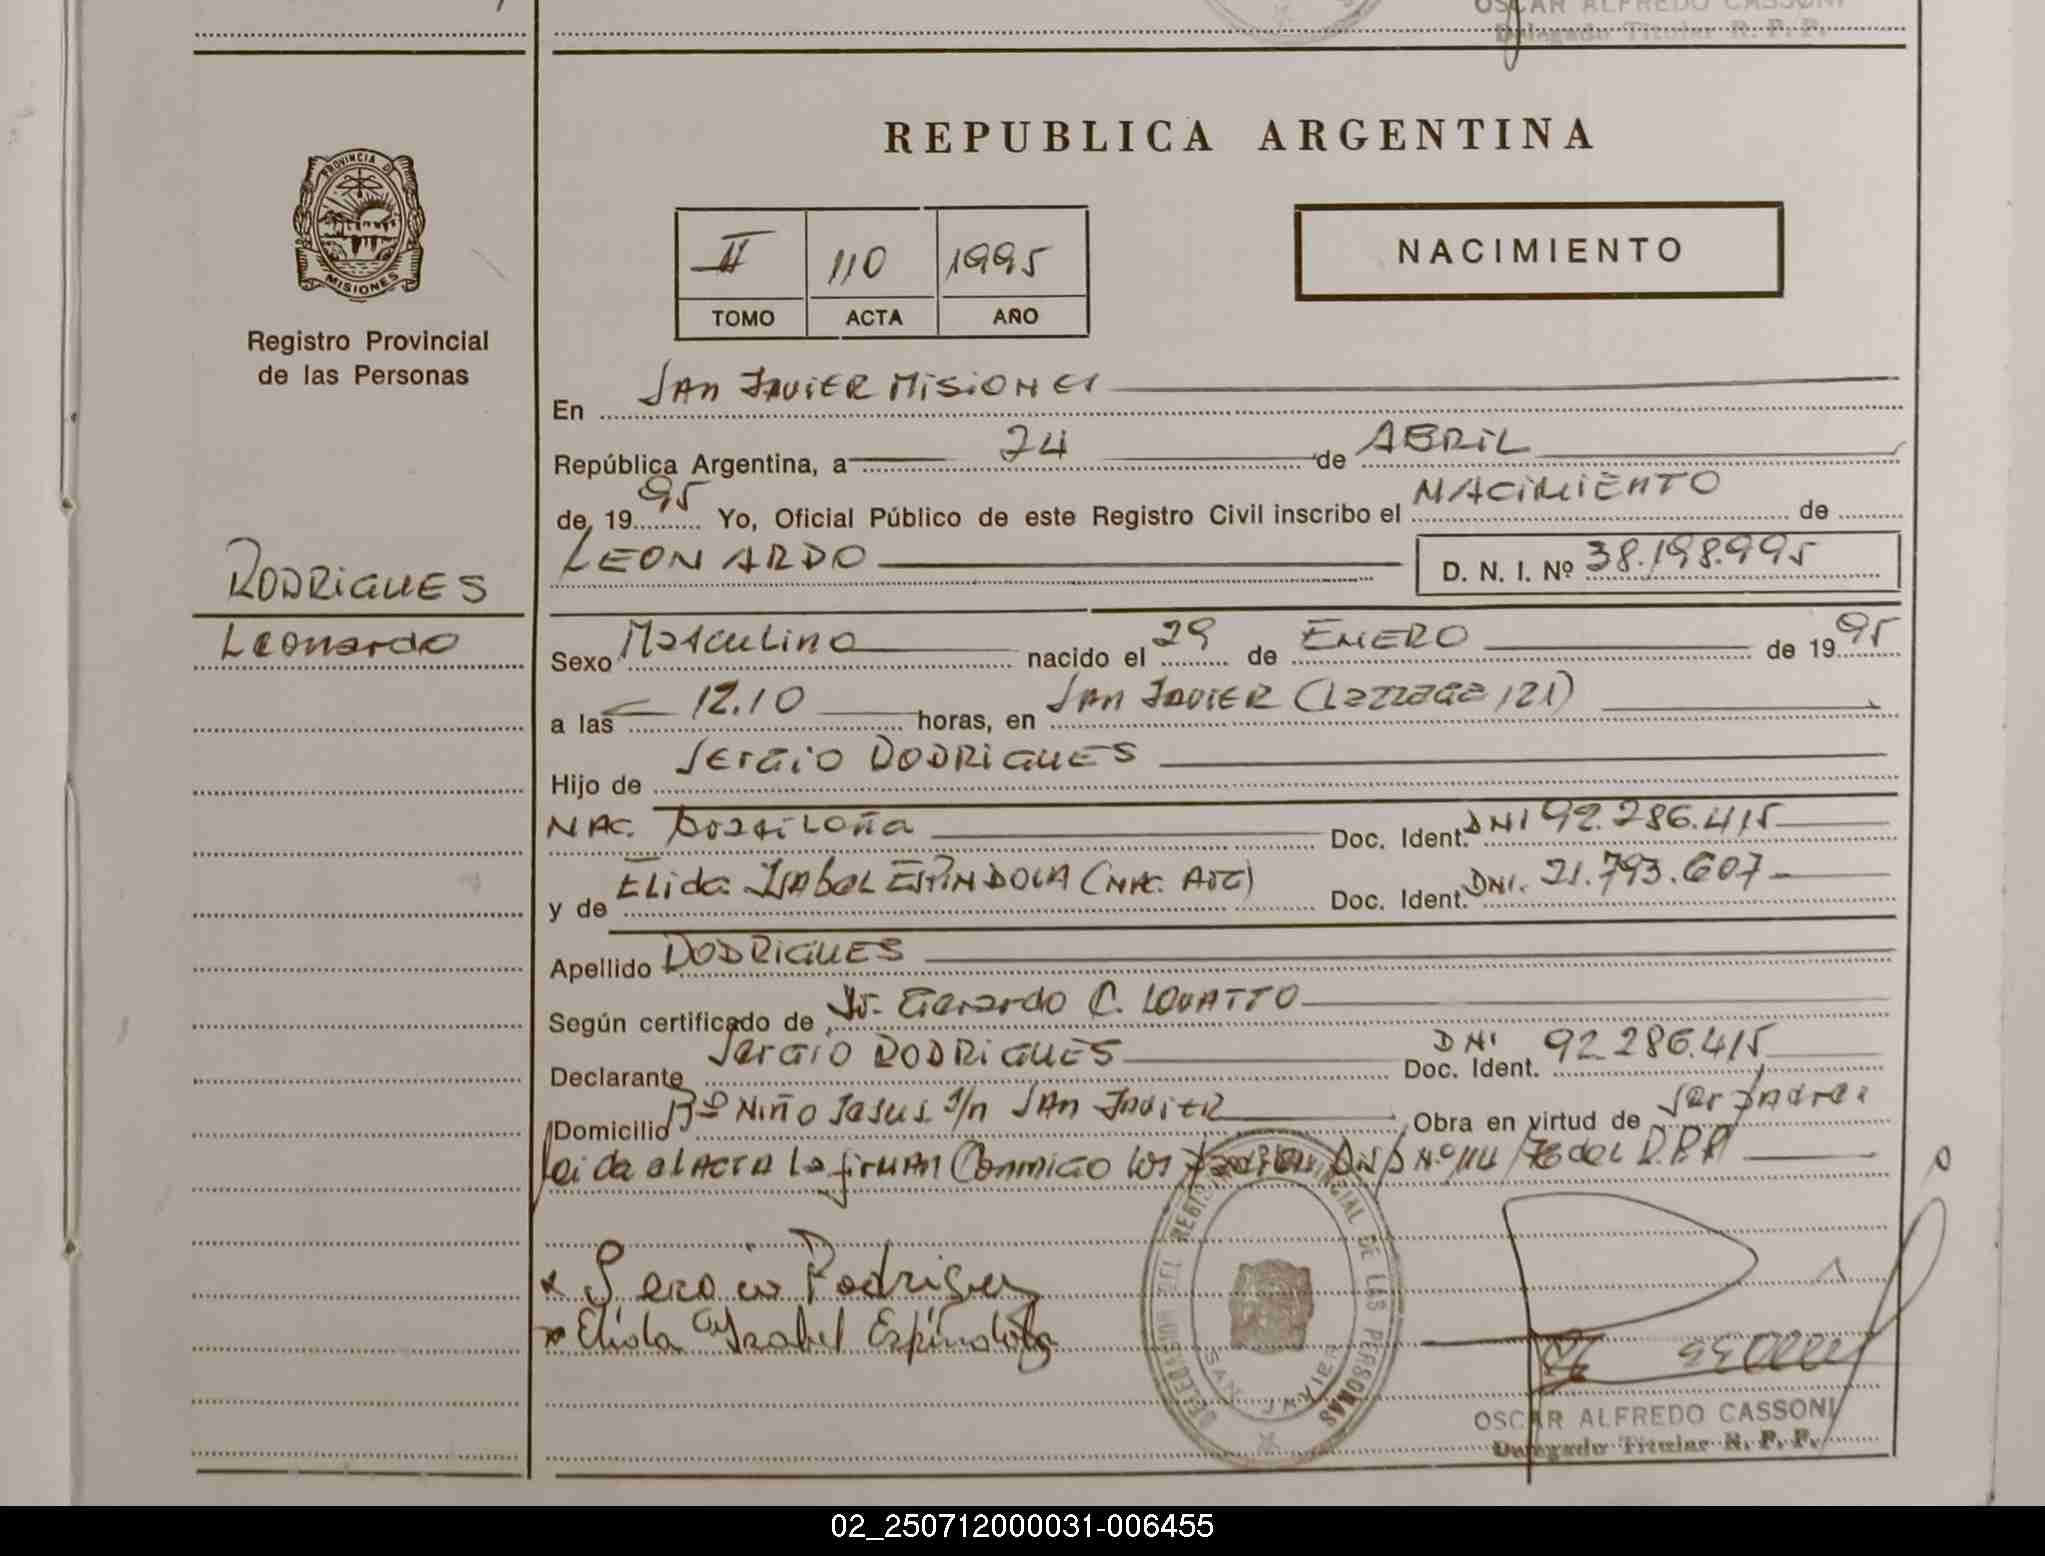 OSCAR ALFREDO CASSONI
Delegado Titular R. P. P.
PROVINCIA D
MISIONES
Registro Provincial
de las Personas
REPUBLICA ARGENTINA
II 110 1995
TOMO ACTA AÑO
NACIMIENTO
En SAN JAVIER MISIONES
República Argentina, a 24 de ABRIL
de 1995 Yo, Oficial Público de este Registro Civil inscribo el NACIMIENTO de
LEONARDO D. N. I. Nº 38.198.995
RODRIGUES
Leonardo
Sexo Masculino nacido el 29 de ENERO de 1995
a las 12.10 horas, en SAN JAVIER (Lazzaga 121)
Hijo de Sergio RODRIGUES
NAC. brasileña Doc. Ident. DNI 92.286.415
y de Elida ISAbel ESPINDOLA (NAC. ARG) Doc. Ident. DNI. 21.793.607
Apellido RODRIGUES
Según certificado de Dr. Gerardo C. LOVATTO
Declarante Sergio RODRIGUES Doc. Ident. DNI 92.286.415
Domicilio Bº Niño Jesus s/n SAN JAVIER Obra en virtud de ser padres
Leida el ACTA la firman Conmigo los Nº 114/76 del R.P.P.
Sergio Rodrigues
Elida Isabel Espindola
DELEGACION DEL REGISTRO PROVINCIAL DE LAS PERSONAS
SAN JAVIER
OSCAR ALFREDO CASSONI
Delegado Titular R. P. P.
02_250712000031-006455